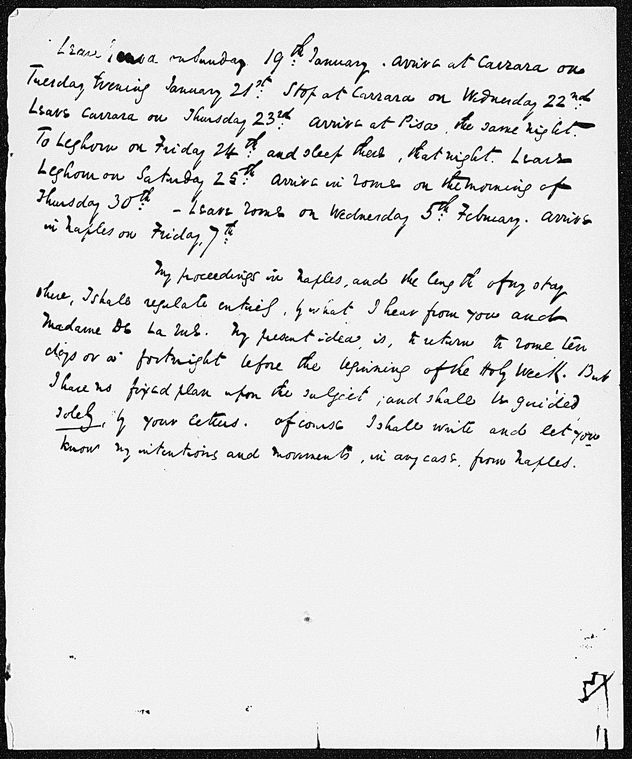 Leave Genoa on Sunday 19th January. Arrive at Carrara on
Tuesday Evening January 21st Stop at Carrara on Wednesday 22nd
Leave Carrara on Thursday 23rd Arrive at Pisa, the same night.
To Leghorn on Friday 24th and sleep there, that night. Leave
Leghorn on Saturday 25th Arrive in Rome on the morning of
Thursday 30th – Leave Rome on Wednesday 5th February. Arrive
in Naples on Friday, 7th
My proceedings in Naples, and the length of my stay
there, I shall regulate entirely, by what I hear from you and
Madame De La Rue. My present idea, is, to return to Rome ten
days or a fortnight before the beginning of the Holy Week. But
I have no fixed plan upon the subject; and shall be guided
solely, by your letters. Of course I shall write and let you
know my intentions and movements, in any case, from Naples.